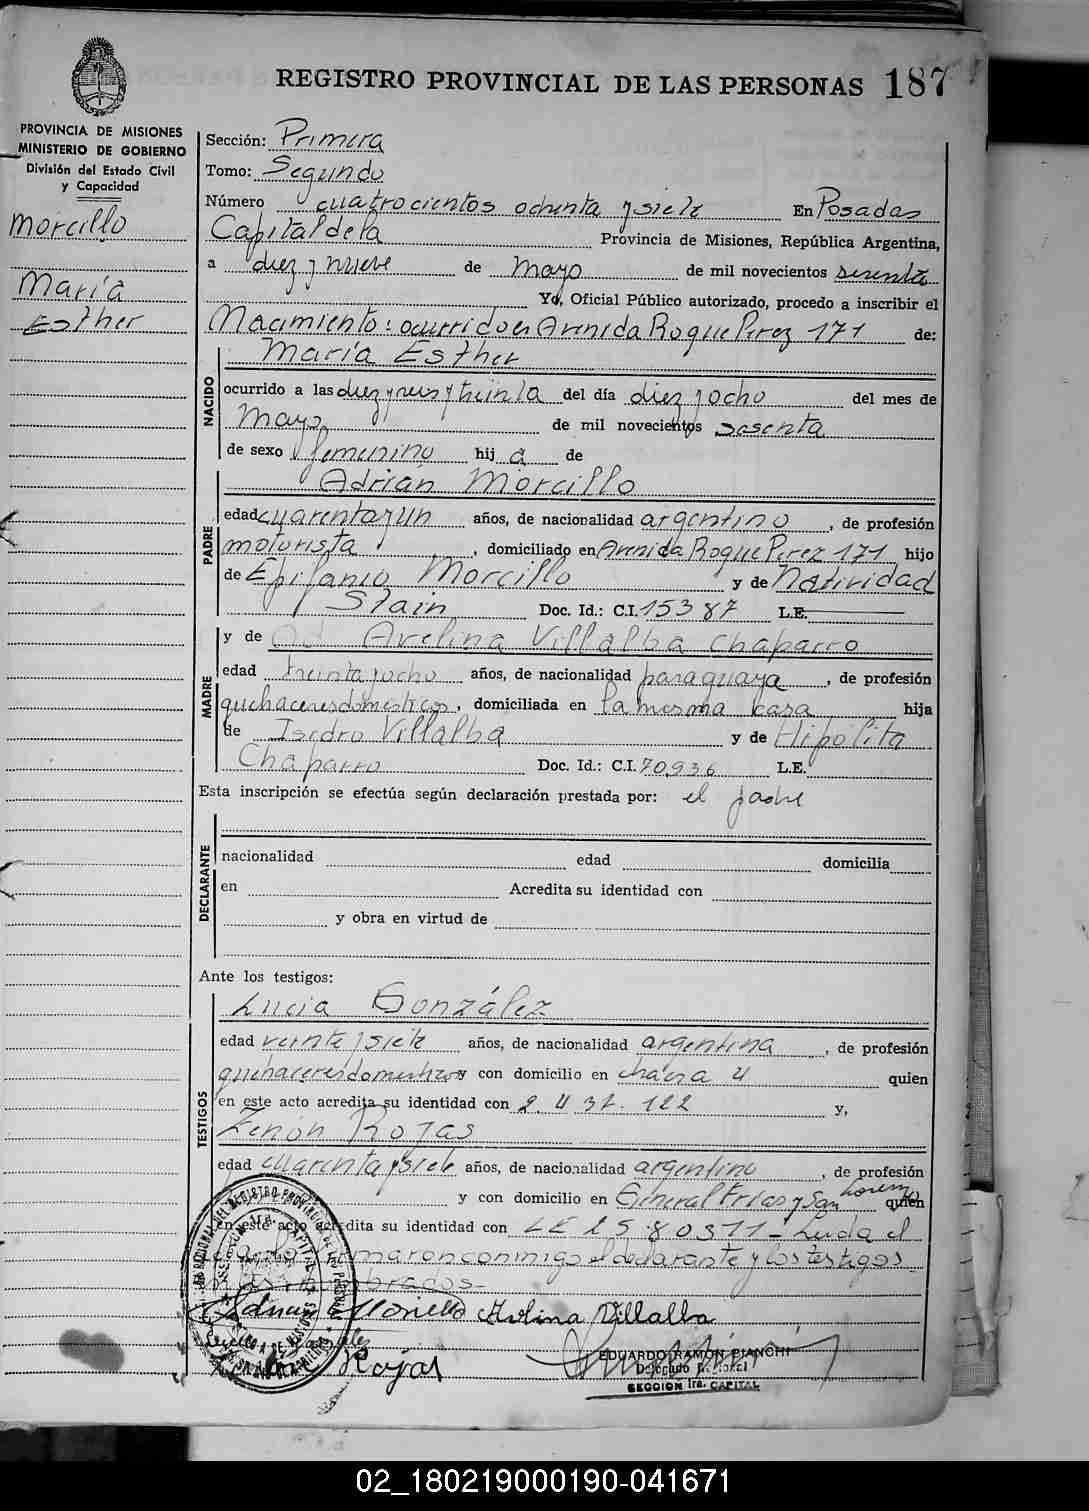 REGISTRO PROVINCIAL DE LAS PERSONAS 187
PROVINCIA DE MISIONES
MINISTERIO DE GOBIERNO
División del Estado Civil
y Capacidad
Morcillo
María
Esther
Sección: Primera
Tomo: Segundo
Número cuatrocientos ochenta y siete En Posadas
Capital de la Provincia de Misiones, República Argentina,
a diez y nueve de mayo de mil novecientos sesenta
Yo, Oficial Público autorizado, procedo a inscribir el
Nacimiento: ocurrido en Avenida Roque Perez 171 de:
María Esther
NACIDO
ocurrido a las diez y seis y treinta del día diez y ocho del mes de
Mayo de mil novecientos sesenta
de sexo femenino hij a de
Adrián Morcillo
PADRE
edad cuarenta y un años, de nacionalidad argentino, de profesión
motorista, domiciliado en Avenida Roque Perez 171 hijo
de Epifanio Morcillo y de Natividad
Stain Doc. Id.: C.I. 15387 L.E.
y de Avelina Villalba Chaparro
MADRE
edad treinta y ocho años, de nacionalidad paraguaya, de profesión
quehaceres domesticos, domiciliada en la misma casa hija
de Isidro Villalba y de Hipólita
Chaparro Doc. Id.: C.I. 70936 L.E.
Esta inscripción se efectúa según declaración prestada por: el padre
DECLARANTE
nacionalidad edad domicilia
en Acredita su identidad con
y obra en virtud de
Ante los testigos:
Lucia González
TESTIGOS
edad veinte y siete años, de nacionalidad argentina, de profesión
quehaceres domesticos y con domicilio en chácra 4 quien
en este acto acredita su identidad con 2.4 37.122 y,
Zenón Rojas
edad cuarenta y siete años, de nacionalidad argentino, de profesión
y con domicilio en General Frias y San Lorenzo quien
en este acto acredita su identidad con LE 2580311 - Leida el
conmigo el declarante y los testigos
Adrian Morcillo Avelina Villalba
Rojas
EDUARDO RAMON BIANCHI
Delegado
SECCION 1ra. CAPITAL
02_180219000190-041671